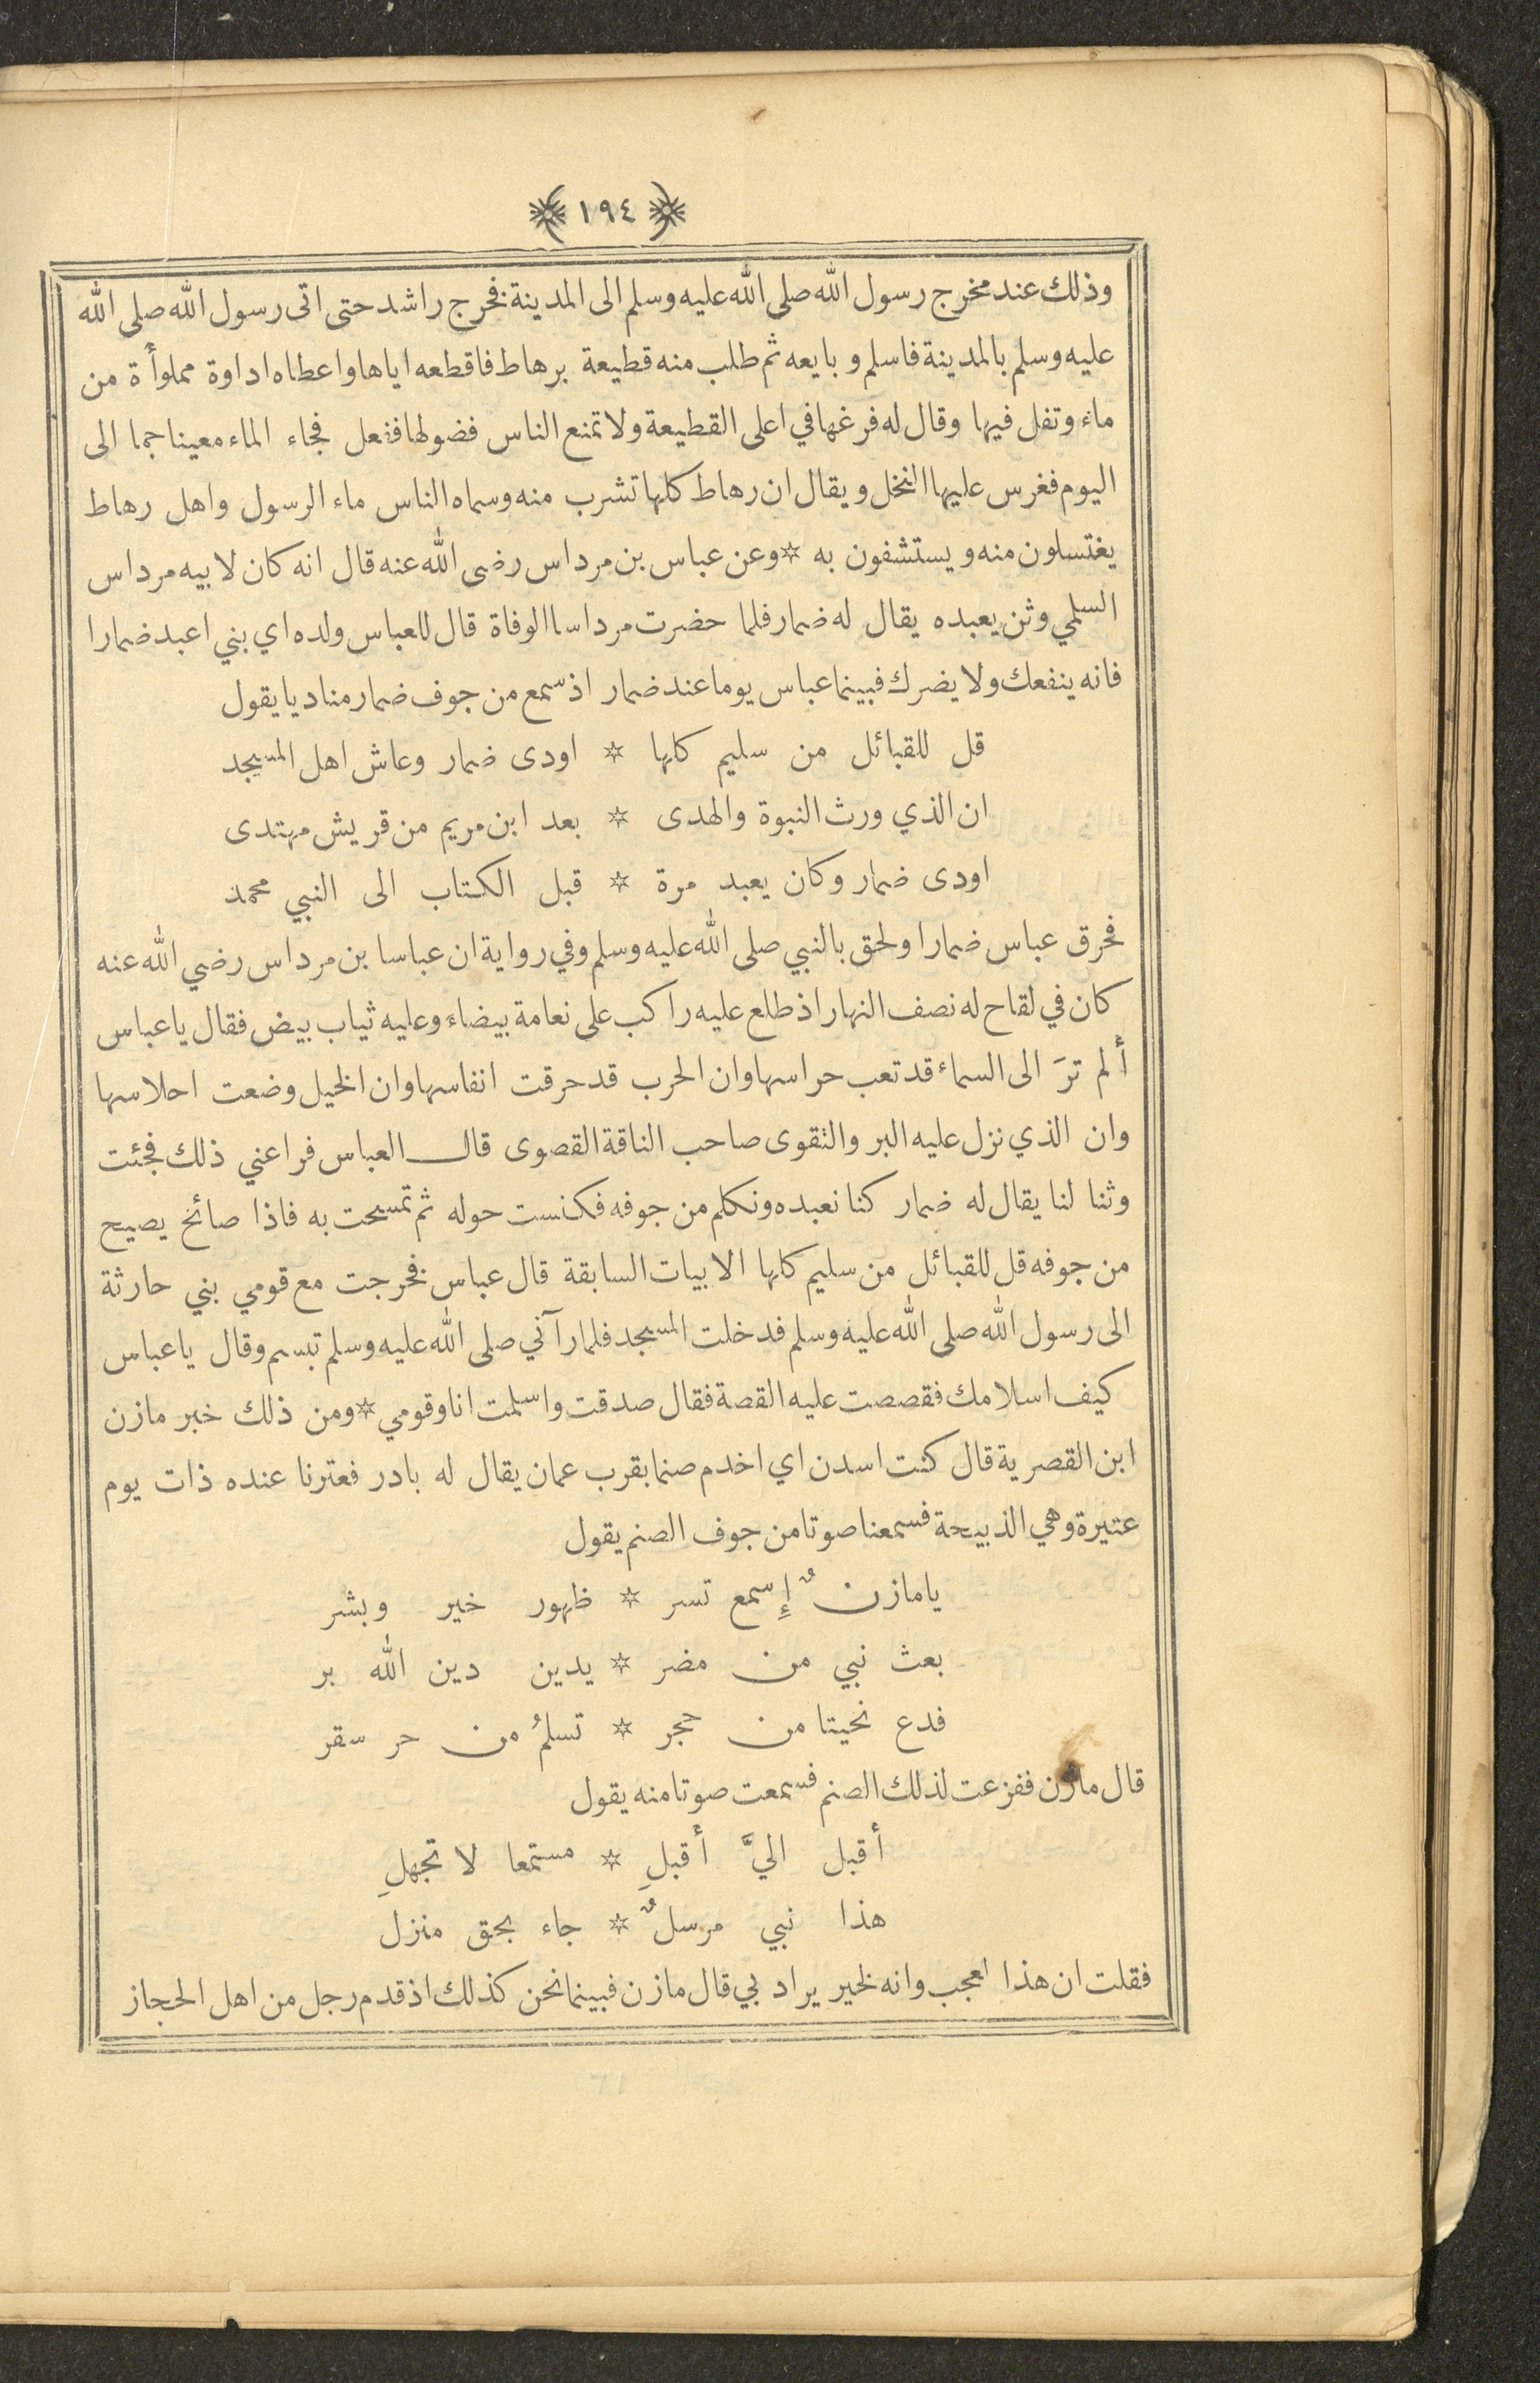 ١٩٤
وذلك عند مخرج رسول الله صلى الله عليه وسلم الى المدينة فخرج راشد حتى اتى رسول الله صلى الله
عليه وسلم بالمدينة فاسلم و بايعه ثم طلب منه قطيعة برهاط فاقطعه اياها واعطاه اداوة مملوأة من
ماء وتفل فيها وقال له فرغها في اعلى القطيعة ولا تمنع الناس فضولها ففعل فجاء الماء معينا جما الى
اليوم فغرس عليها النخل ويقال ان رهاط كلها تشرب منه وسماه الناس ماء الرسول واهل رهاط
يغتسلون منه و يستشفون به * وعن عباس بن مرداس رضى الله عنه قال انه كان لابيه مرداس
السلمي وثن يعبده يقال له ضمار فلما حضرت مرداسا الوفاة قال للعباس ولده اي بني اعبد ضمارا
فانه ينفعك ولا يضرك فبينما عباس يوما عند ضمار اذ سمع من جوف ضمار مناديا يقول
قل للقبائل من سليم كلها * اودى ضمار وعاش اهل المسجد
ان الذي ورث النبوة والهدى * بعد ابن مريم من قريش مهتدى
اودى ضمار وكان يعبد مرة * قبل الكتاب الى النبي محمد
فحرق عباس ضمارا ولحق بالنبي صلى الله عليه وسلم وفي رواية ان عباسا بن مرداس رضي الله عنه
كان في لقاح له نصف النهار اذ طلع عليه راكب على نعامة بيضاء وعليه ثياب بيض فقال يا عباس
ألم ترَ الى السماء قد تعب حراسها وان الحرب قد حرقت انفاسها وان الخيل وضعت احلاسها
وان الذي نزل عليه البر والتقوى صاحب الناقة القصوى قال العباس فراعني ذلك فجئت
وثنا لنا يقال له ضمار كنا نعبده ونكلم من جوفه فكنست حوله ثم تمسحت به فاذا صائح يصيح
من جوفه قل للقبائل من سليم كلها الابيات السابقة قال عباس فخرجت مع قومي بني حارثة
الى رسول الله صلى الله عليه وسلم فدخلت المسجد فلما رآني صلى الله عليه وسلم تبسم وقال يا عباس
كيف اسلامك فقصصت عليه القصة فقال صدقت واسلمت انا وقومي * ومن ذلك خبر مازن
ابن القصرية قال كنت اسدن اي اخدم صنما بقرب عمان يقال له بادر فعترنا عنده ذات يوم
عتيرة وهي الذبيحة فسمعنا صوتا من جوف الصنم يقول
يا مازنٌ إِسمع تسر * ظهور خير وبشر
بعث نبي من مضر * يدين دين الله بر
فدع نحيتا من حجر * تسلمُ من حر سقر
قال مازن ففزعت لذلك الصنم فسمعت صوتا منه يقول
أقبل اليَّ أقبلِ * مستمعا لا تجهلِ
هذا نبي مرسلٌ * جاء بحق منزل
فقلت ان هذا لعجب وانه لخير يراد بي قال مازن فبينما نحن كذلك اذ قدم رجل من اهل الحجاز